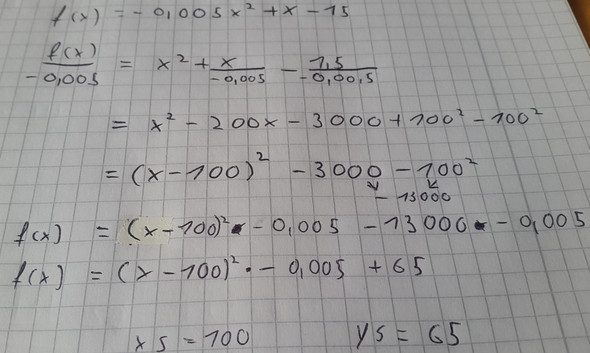 f(x) = -0,005x² + x - 15
f(x)/-0,005 = x² + x/-0,005 - 1,5/-0,00,5
= x² - 200x - 3000 + 100² - 100²
= (x-100)² - 3000 - 100²
-13000
f(x) = (x-100)² • - 0,005 - 13000 • - 0,005
f(x) = (x-100)² · - 0,005 + 65
xs = 100 ys = 65